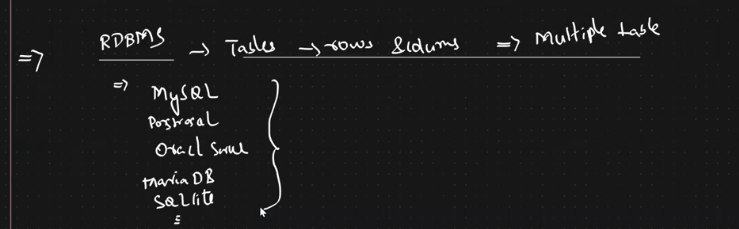 => RDBMS → Tables → rows &colums => Multiple task
=> MySQL
PostgreSQL
Oracl
MariaDB
SQLlite